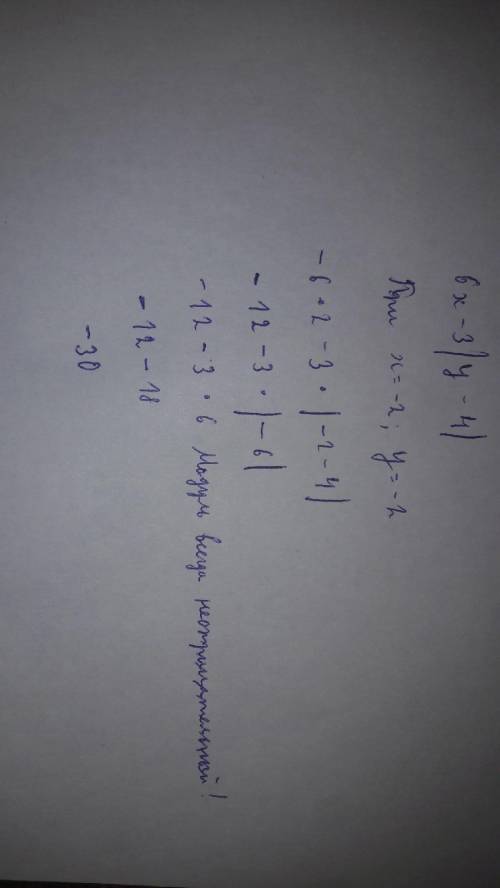 6x - 3|y - 4|
При x = -2; y = -2
-6 · 2 - 3 · |-2 - 4|
-12 - 3 · |-6|
-12 - 3 · 6 Модуль всегда неотрицательный!
-12 - 18
-30